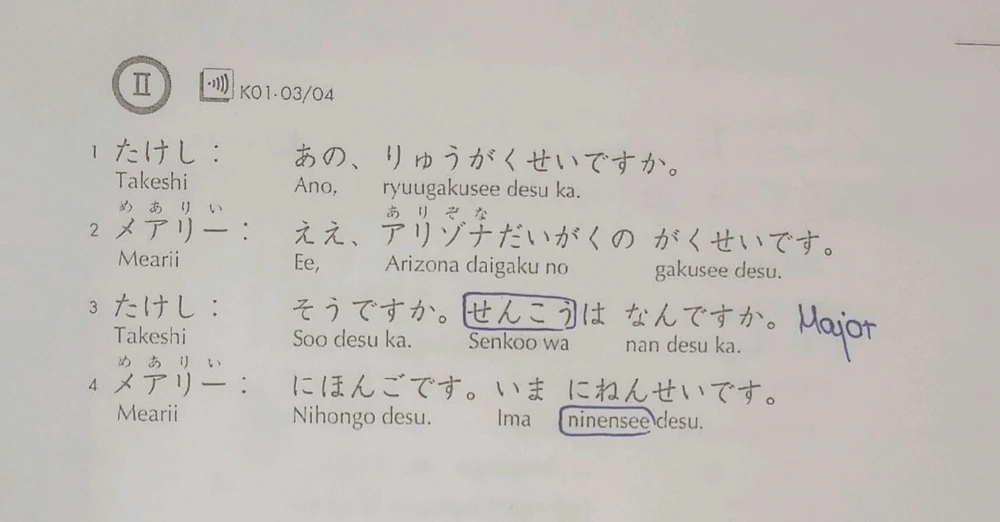 Ⅱ K01-03/04
1 たけし： あの、りゅうがくせいですか。
Takeshi Ano, ryuugakusee desu ka.
めありい ありぞな
2 メアリー： ええ、アリゾナだいがくの がくせいです。
Mearii Ee, Arizona daigaku no gakusee desu.
3 たけし： そうですか。せんこうは なんですか。 Major
Takeshi Soo desu ka. Senkoo wa nan desu ka.
めありい
4 メアリー： にほんごです。いま にねんせいです。
Mearii Nihongo desu. Ima ninensee desu.